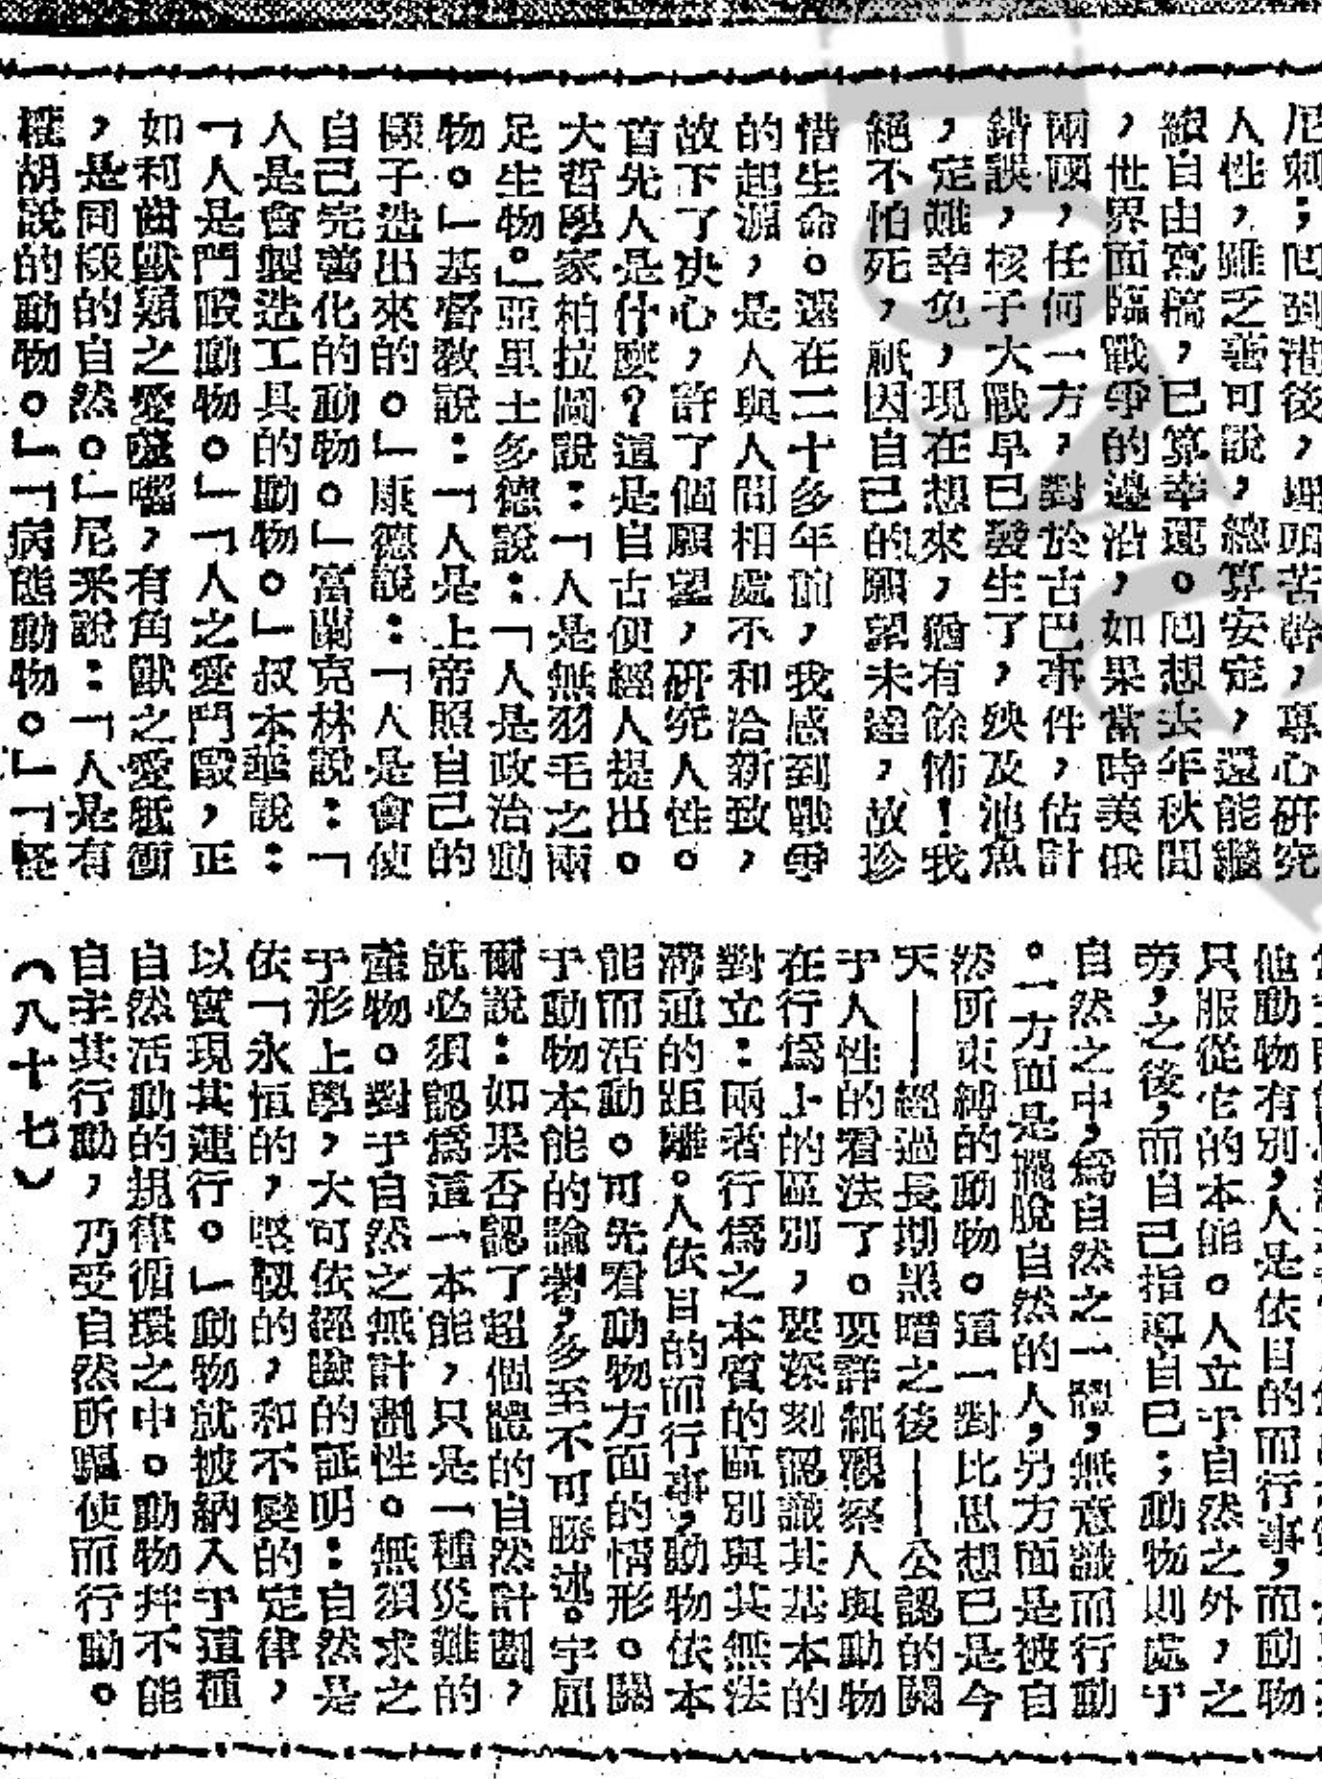 尼刺；回到港後，埋頭苦幹，專心研究
人性，雖乏善可說，總算安定，還能繼
續自由寫稿，已算幸運。囘想去年秋間
，世界面臨戰爭的邊沿，如果當時美俄
兩國，任何一方，對於古巴事件，估計
錯誤，核子大戰早已發生了，殃及池魚
，定難幸免，現在想來，猶有餘怖！我
絕不怕死，祇因自己的願望未達，故珍
惜生命。遠在二十多年前，我感到戰爭
的起源，是人與人間相處不和洽所致，
故下了決心，許了個願望，研究人性。
首先人是什麼？這是自古便經人提出。
大哲學家柏拉圖說：「人是無羽毛之兩
足生物。」亞里士多德說：「人是政治動
物。」基督敎說：「人是上帝照自己的
樣子造出來的。」康德說：「人是會使
自己完善化的動物。」富蘭克林說：「
人是會製造工具的動物。」叔本華說：
「人是鬥毆動物。」「人之愛鬥毆，正
如利齒獸類之愛噬嚙，有角獸之愛牴衝
，是同樣的自然。」尼采說：「人是有
權胡說的動物。」「病態動物。」「怪
他動物有別，人是依目的而行事，而動物
只服從它的本能。人立于自然之外，之
旁，之後，而自己指導自己；動物則處于
自然之中，爲自然之一體，無意識而行動
。一方面是擺脫自然的人，另方面是被自
然所束縛的動物。這一對比思想已是今
天——經過長期黑暗之後——公認的關
于人性的看法了。要詳細觀察人與動物
在行爲上的區別，要深刻認識其基本的
對立：兩者行爲之本質的區別與其無法
溝通的距離。人依目的而行事，動物依本
能而活動。可先看動物方面的情形。關
于動物本能的論著，多至不可勝述。宇屈
爾說：如果否認了超個體的自然計劃，
就必須認爲這一本能，只是一種災難的
產物。對于自然之無計劃性。無須求之
于形上學，大可依經驗的証明：自然是
依「永恒的，堅韌的，和不變的定律，
以實現其運行。」動物就被納入于這種
自然活動的規律循環之中。動物拌不能
自主其行動，乃受自然所驅使而行動。
（八十七）